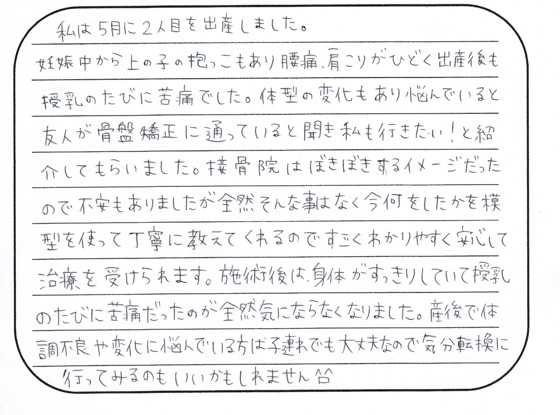 私は5月に2人目を出産しました。
妊娠中から上の子の抱っこもあり腰痛、肩こりがひどく出産後も
授乳のたびに苦痛でした。体型の変化もあり悩んでいると
友人が骨盤矯正に通っていると聞き私も行きたい!と紹
介してもらいました。接骨院はぼきぼきするイメージだった
ので不安もありましたが全然そんな事はなく今何をしたかを模
型を使って丁寧に教えてくれるのですごくわかりやすく安心して
治療を受けられます。施術後は、身体がすっきりしていて授乳
のたびに苦痛だったのが全然気にならなくなりました。産後で体
調不良や変化に悩んでいる方は子連れでも大丈夫なので気分転換に
行ってみるのもいいかもしれません^^